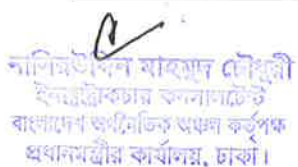 নাসিরউদ্দিন মাহমুদ চৌধুরী
ইনফ্রাস্ট্রাকচার কনসালটেন্ট
বাংলাদেশ অর্থনৈতিক অঞ্চল কর্তৃপক্ষ
প্রধানমন্ত্রীর কার্যালয়, ঢাকা।